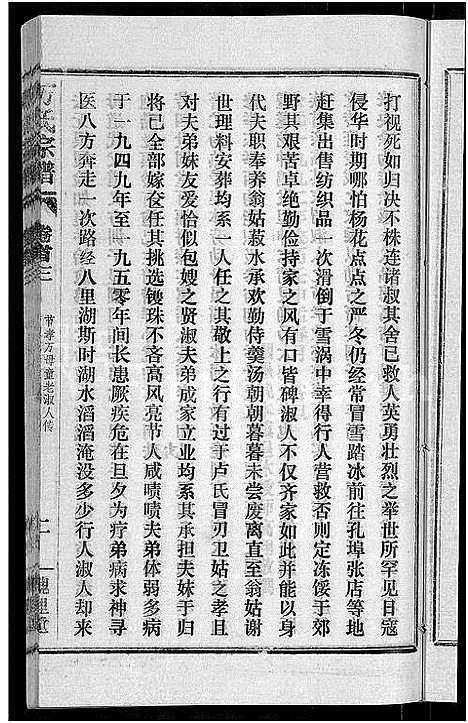 打视死如归决不株连诸淑其舍已救人英勇壮烈之举世所罕见日寇
侵华时期哪怕杨花点点之严冬仍经常冒雪踏冰前往孔埠张店等地
赶集出售纺织品一次滑倒于雪涡中幸得行人营救否则定冻馁于郊
野其艰苦卓绝勤俭持家之风有口皆碑淑人不仅齐家如此并能以身
代夫职奉养翁姑菽水承欢勤侍羹汤朝朝暮暮未尝废离直至翁姑谢
世理料安葬均系一人任之其敬上之行有过于卢氏冒刃卫姑之孝且
对夫弟妹友爱恰似包嫂之贤淑夫弟成家立业均系其承担夫妹于归
将己全部嫁奁任其挑选镂珠不吝高风亮节人咸啧啧夫弟体弱多病
于一九四九年至一九五零年间长患厥疾危在旦夕为疗弟病求神寻
医八方奔走一次路经八里湖斯时湖水滔滔淹没多少行人淑人却来
万氏宗谱
卷首三
节孝万母童老淑人传
二